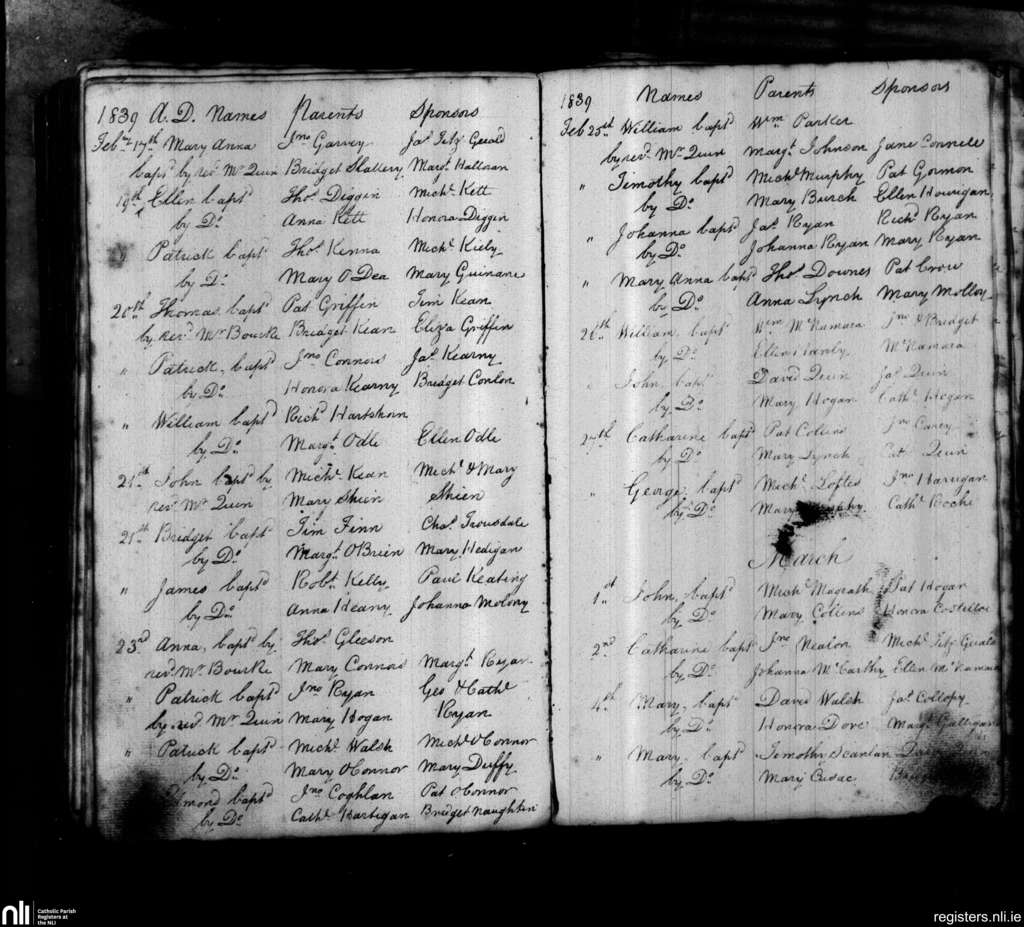 1839 A. D. Names Parents Sponsors
Feby 17th Mary Anna Jno Garvey Jas Fitz Gerald
bapd by revd Mr Quin Bridget Slattery Margt Halloran
19th Ellen bapd Thos Diggin Michl Kett
by Do Anna Kett Honora Diggin
Patrick bapd Thos Kenna Michl Kiely
by Do Mary O Dea Mary Guinane
20th Thomas bapd Pat Griffin Tim Kean
by revd Mr Bourke Bridget Kean Eliza Griffin
" Patrick bapd Jno Connors Jas Kearny
by Do Honora Kearny Bridget Conlon
" William bapd Richd Hartshorn
by Do Margt Odle Ellen Odle
21th John bapd by Michl Kean Michl & Mary
revd Mr Quin Mary Shien Shien
21th Bridget bapd Tim Finn Chas Trousdale
by Do Margt O'Brien Mary Hedigan
" James bapd Robt Kelly Paul Keating
by Do Anna Heany Johanna Molony
23rd Anna bapd by Thos Gleeson
revd Mr Bourke Mary Connors Margt Ryan
" Patrick bapd Jno Ryan Geo & Cathe
by revd Mr Quin Mary Hogan Ryan
" Patrick bapd Michl Walsh Michl O'Connor
by Do Mary O'Connor Mary Duffy
bapd Jno Coghlan Pat O'Connor
by Do Cathe Hartigan Bridget Naughtin
1839 Names Parents Sponsors
Feb 25th William bapd Wm Parker
by revd Mr Quin Margt Johnson Jane Connell
" Timothy bapd Michl Murphy Pat Gorman
by Do Mary Burch Ellen Hourigan
" Johanna bapd Jas Ryan Richd Ryan
by Do Johanna Ryan Mary Ryan
" Mary Anna bapd Thos Downes Pat Crow
by Do Anna Lynch Mary Molloy
26th William bapd Wm McNamara Jno & Bridget
by Do Ellen Hanly McNamara
John bapd David Quin Jas Quin
by Do Mary Hogan Cathe Hogan
27th Catharine bapd Pat Collins Jno Carey
by Do Mary Lynch Quin
" George bapd Michl Loftes Jno Harigan
by Do Mary Cathe Roche
March
1st John bapd Michl Magrath Pat Hogan
by Do Mary Collins Honora Costelloe
2nd Catharine bapd Jno Nealon Michl Fitz Gerald
by Do Johanna McCarthy Ellen McNamara
4th Mary bapd David Walsh Jas Collopy
by Do Honora Dore Margt Galligan
" Mary bapd Timothy Scanlan
by Do Mary Cusac
nli Catholic Parish
Registers at
the NLI
registers.nli.ie